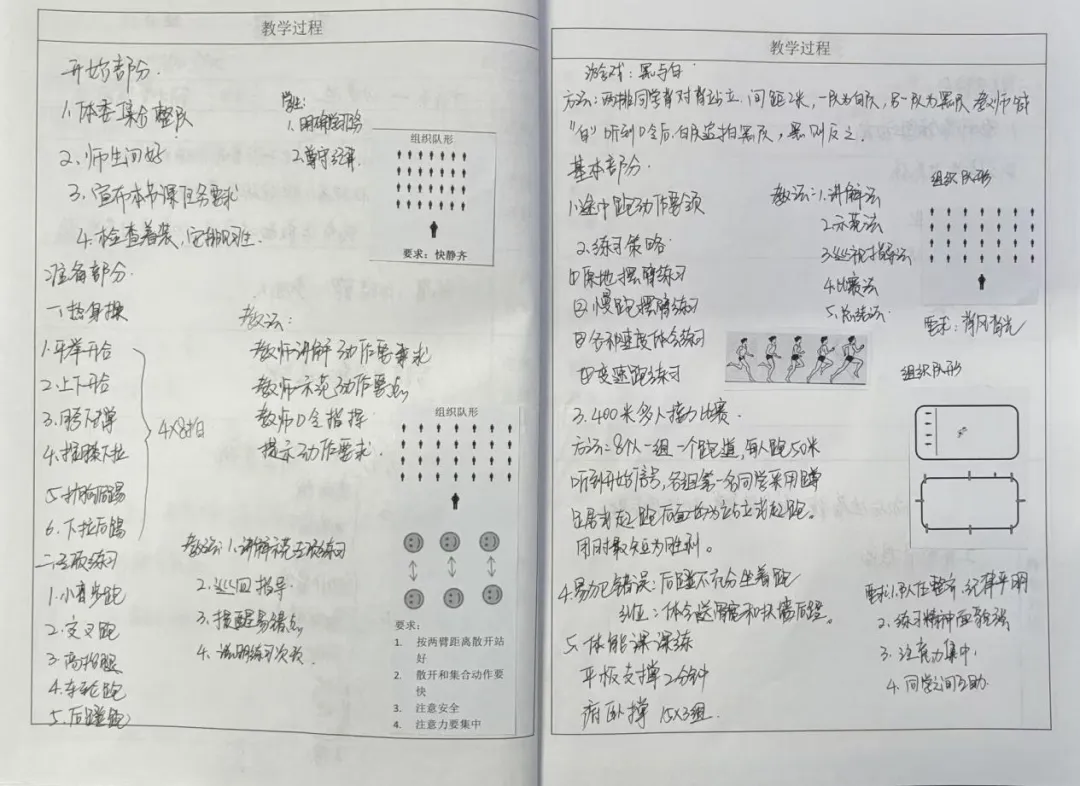 教学过程
开始部分.
1. 体委集合整队
2. 师生问好
3. 宣布本节课任务要求
4. 检查着装,安排见习生.
学生:
1. 明确学习任务
2. 遵守纪律.
组织队形
要求:快静齐
准备部分.
一、热身操
1. 平举开合
2. 上下开合
3.
4. 提膝下拉
5. 后踢
6. 下拉后踢
4×8拍
教法:
教师讲解动作要求
教师示范动作要点
教师口令指挥
提示动作要求.
组织队形
二、专项练习
1. 小步跑
2. 交叉跑
3. 高抬腿
4. 车轮跑
5. 后蹬跑
教法: 1. 讲解示范专项练习
2. 巡回指导.
3. 提醒易错点.
4. 说明练习次数.
要求:
1. 按两臂距离散开站好
2. 散开和集合动作要快
3. 注意安全
4. 注意力要集中
教学过程
游戏:黑与白.
方法:两排同学背对背站立.间距2米,一队为白队,另一队为黑队.教师喊
"白"听到口令后白队追拍黑队,黑则反之.
基本部分.
1. 途中跑动作要领
2. 练习策略.
① 原地摆臂练习
② 慢跑摆臂练习
③ 各种速度体会练习
④ 变速跑练习
教法:1. 讲解法
2. 示范法
3. 巡视指导法
4. 比赛法
5. 总结法.
组织队形
要求:背风背光
组织队形
3. 400米多人接力比赛.
方法:8个人一组一个跑道,每人跑50米
听到开始信号,各组第一名同学采用蹲
踞式起跑后面的为站立式起跑。
用时最短为胜利。
4. 易犯错误:后蹬不充分坐着跑
纠正:体会送髋和扒蹬后蹬。
5. 体能课课练
平板支撑2分钟
俯卧撑 15×3组.
要求:1. 队伍整齐,纪律严明
2. 练习精神面貌强
3. 注意力集中.
4. 同学之间互助.